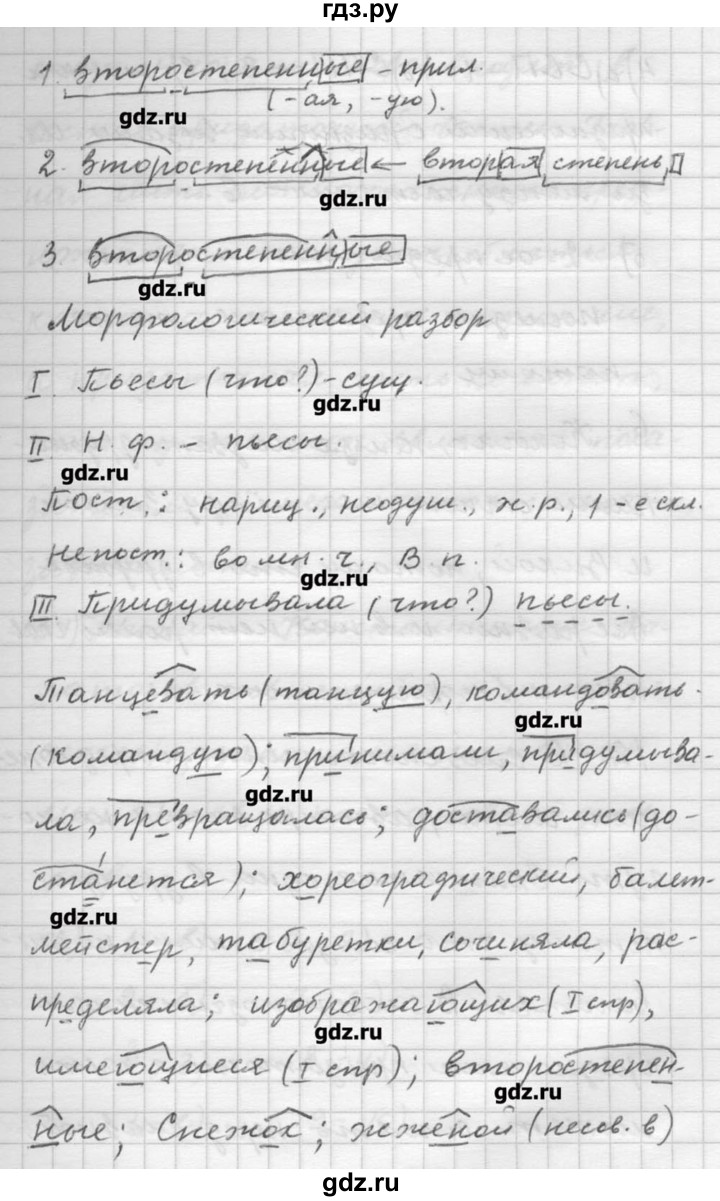 гдз.ру
1. второстепенные – прил.
(-ая, -ую).
gdz.ru
2. второстепенные ← вторая степень
gdz.ru
3 второстепенные
gdz.ru
Морфологический разбор
I. Пьесы (что?) – сущ.
gdz.ru
II Н. ф. – пьесы
gdz.ru
Пост.: нариц., неодуш., ж.р., 1-е скл.
Непост.: во мн. ч., В п.
gdz.ru
III. Придумывала (что?) пьесы.
Танцевать (танцую), командовать
gdz.ru
(командую); принимали, придумыва-
gdz.ru
ла, превращалась; доставались (до-
станется); хореографический, балет-
gdz.ru
мейстер, табуретки, сочиняла, рас-
пределяла; изображающих (I спр),
gdz.ru
имеющиеся (I спр); второстепен-
gdz.ru
ные; Снежок; жженой (несов. в)
gdz.ru